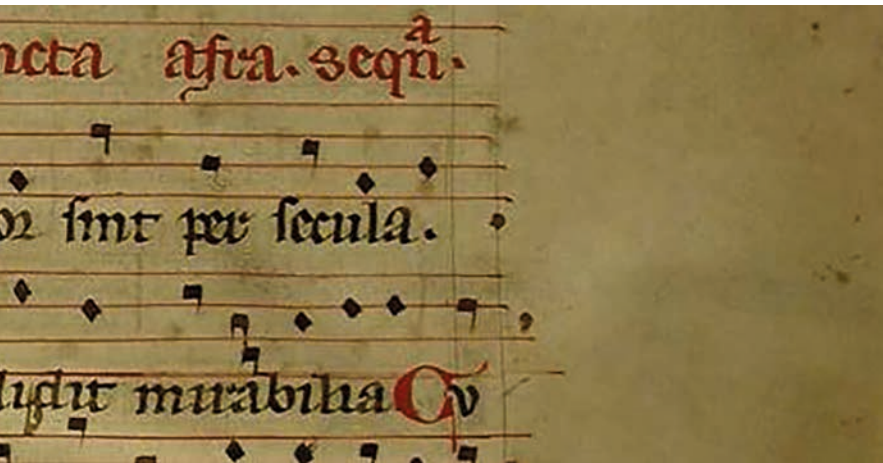 ncta afra. seqn̄a.
oꝛ sint per secula.
didit mirabilia Cv